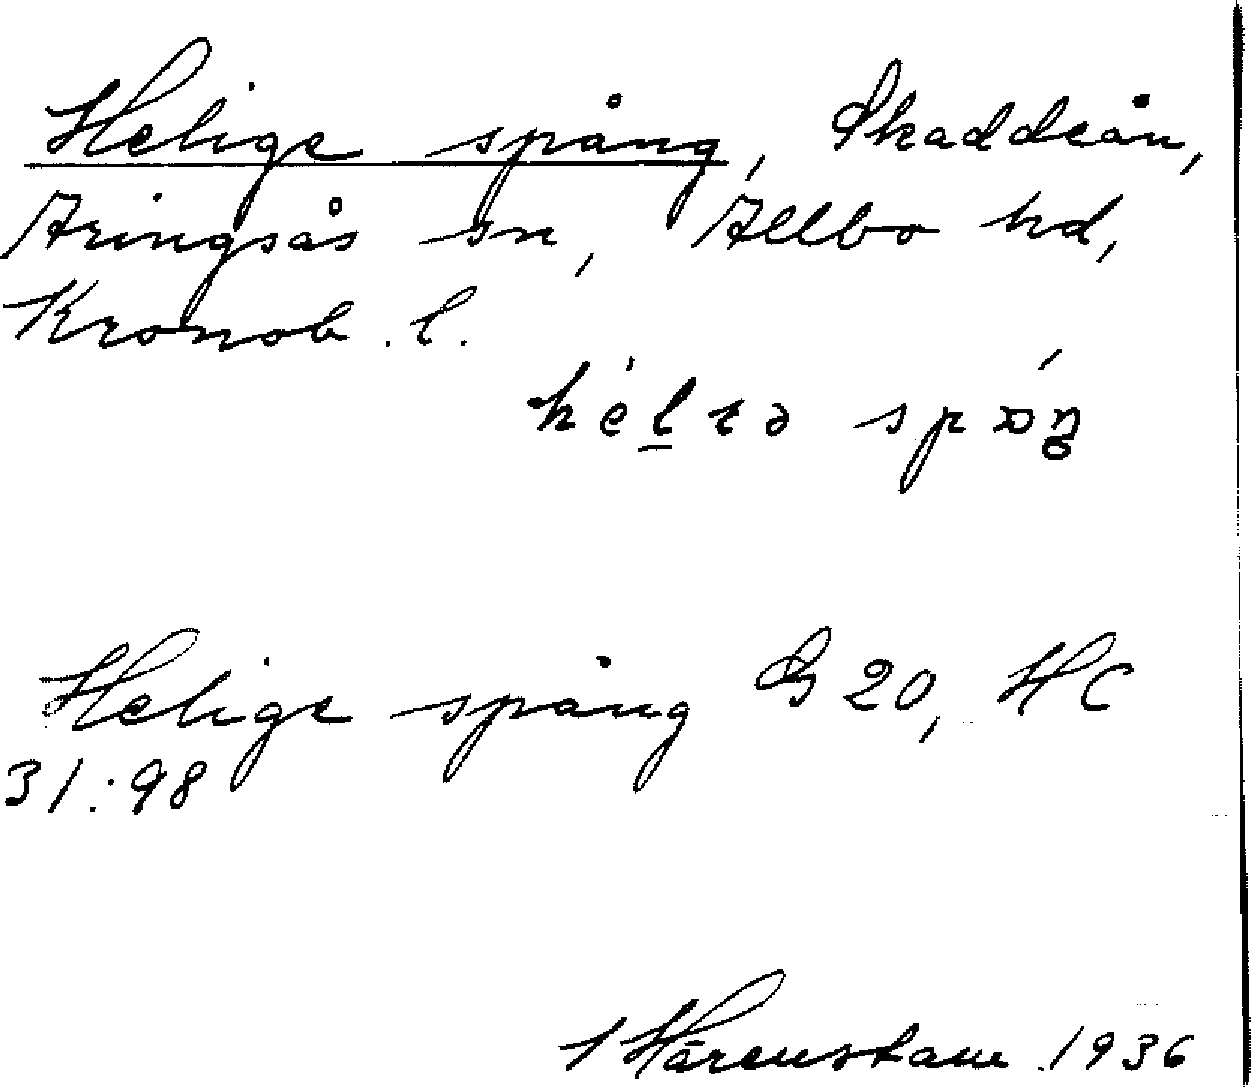 Helige spång, Skaddeån,
Aringsås sn, Allbo hd,
Kronob. l.
Helige spång G 20, HC
31:98
Härenstam 1936